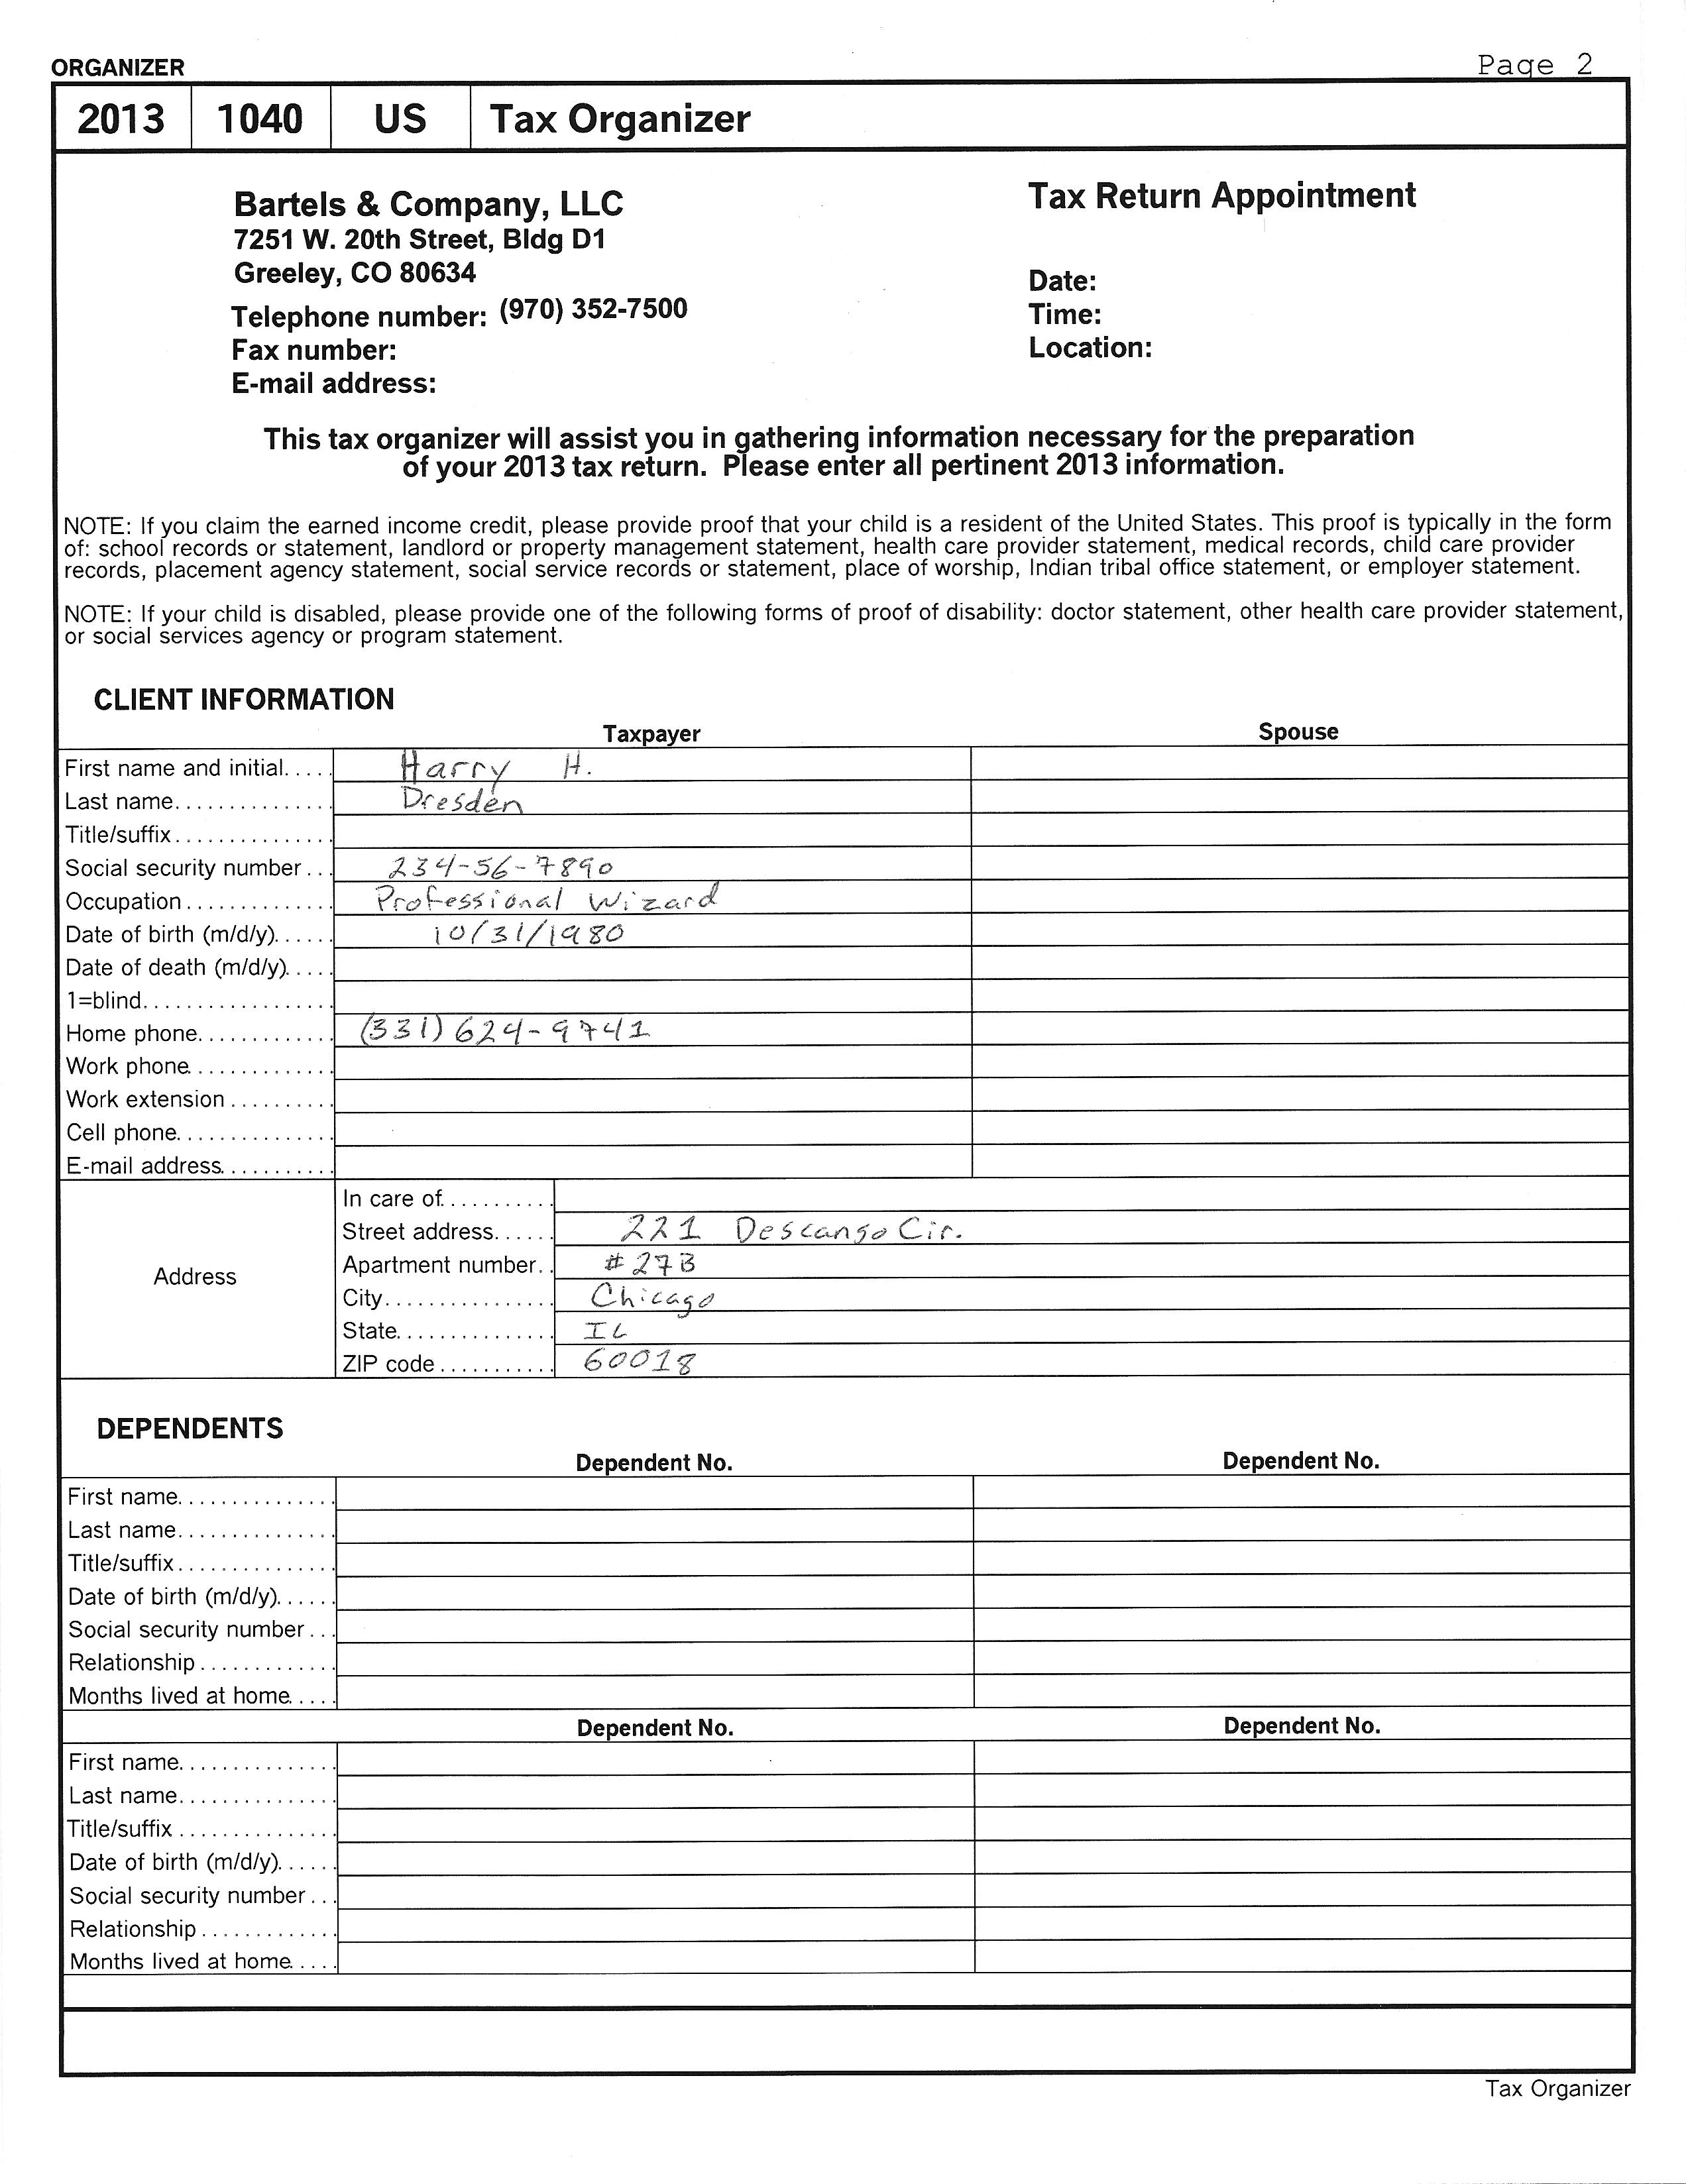 ORGANIZER Page 2
2013 1040 US Tax Organizer
Bartels & Company, LLC
7251 W. 20th Street, Bldg D1
Greeley, CO 80634
Telephone number: (970) 352-7500
Fax number:
E-mail address:
Tax Return Appointment
Date:
Time:
Location:
This tax organizer will assist you in gathering information necessary for the preparation
of your 2013 tax return. Please enter all pertinent 2013 information.
NOTE: If you claim the earned income credit, please provide proof that your child is a resident of the United States. This proof is typically in the form
of: school records or statement, landlord or property management statement, health care provider statement, medical records, child care provider
records, placement agency statement, social service records or statement, place of worship, Indian tribal office statement, or employer statement.
NOTE: If your child is disabled, please provide one of the following forms of proof of disability: doctor statement, other health care provider statement,
or social services agency or program statement.
CLIENT INFORMATION
Taxpayer Spouse
First name and initial..... Harry H.
Last name............... Dresden
Title/suffix...............
Social security number... 234-56-7890
Occupation.............. Professional Wizard
Date of birth (m/d/y)...... 10/31/1980
Date of death (m/d/y).....
1=blind..................
Home phone............. (331) 624-9741
Work phone.............
Work extension..........
Cell phone...............
E-mail address...........
Address
In care of...........
Street address...... 221 Descanso Cir.
Apartment number.. #27B
City................ Chicago
State............... IL
ZIP code........... 60018
DEPENDENTS
Dependent No. Dependent No.
First name...............
Last name...............
Title/suffix...............
Date of birth (m/d/y)......
Social security number...
Relationship.............
Months lived at home.....
Dependent No. Dependent No.
First name...............
Last name...............
Title/suffix...............
Date of birth (m/d/y)......
Social security number...
Relationship.............
Months lived at home.....
Tax Organizer